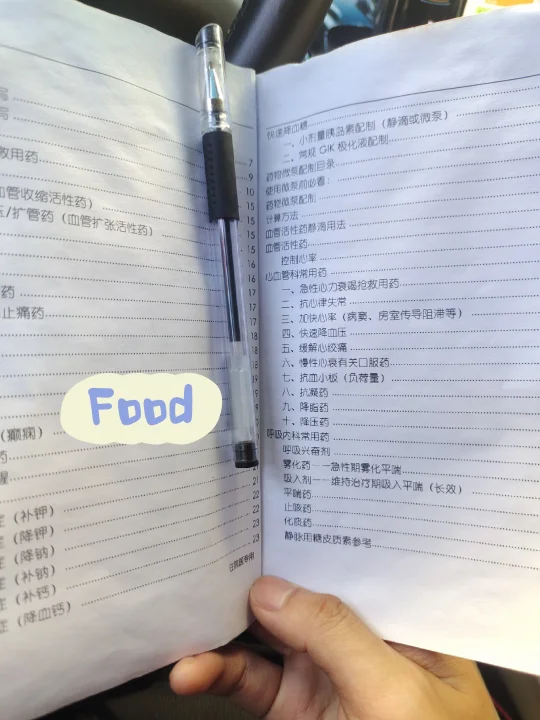 救用药
7
9
10
血管收缩活性药）
15
压/扩管药（血管扩张活性药）
15
15
16
16
药
17
止痛药
17
17
18
18
18
19
19
Food
（癫痫）
药
21
症（补钾）
22
症（降钾）
22
症（降钠）
23
症（补钠）
23
症（补钙）
症（降血钙）
住院医专用
快速降血糖
一、小剂量胰岛素配制（静滴或微泵）
二、常规 GIK 极化液配制
药物微泵配制目录
使用微泵前必看：
药物微泵配制
计算方法
血管活性药静滴用法
血管活性药
控制心率
心血管科常用药
一、急性心力衰竭抢救用药
二、抗心律失常
三、加快心率（病窦、房室传导阻滞等）
四、快速降血压
五、缓解心绞痛
六、慢性心衰有关口服药
七、抗血小板（负荷量）
八、抗凝药
九、降脂药
十、降压药
呼吸内科常用药
呼吸兴奋剂
雾化药——急性期雾化平喘
吸入剂——维持治疗期吸入平喘（长效）
平喘药
止咳药
化痰药
静脉用糖皮质素参考